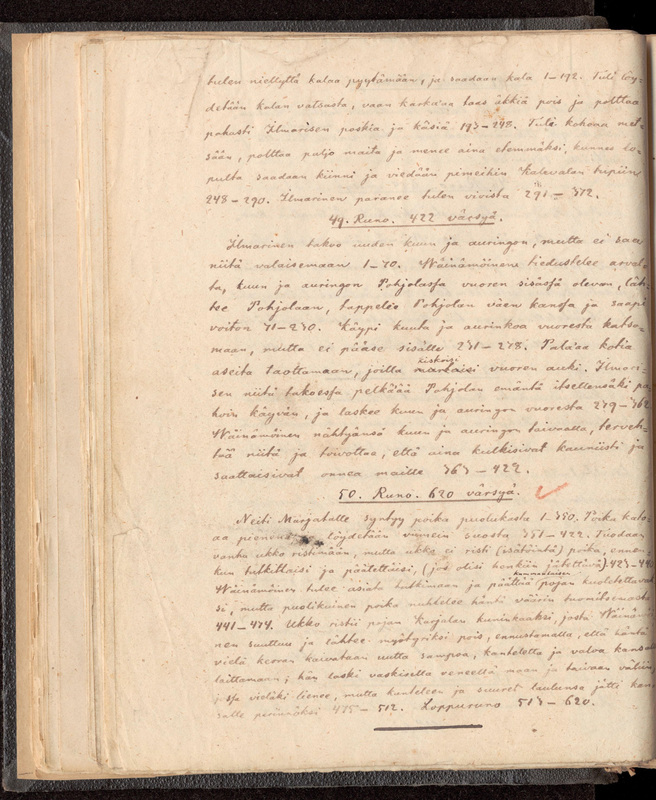 tulen niellyttä kalaa pyytämään, ja saadaan kala 1–192. Tuli löy-
detään kalan vatsasta, vaan karkaa taas äkkiä pois ja polttaa
pahasti Ilmarisen poskia ja käsiä 193–248. Tuli kohoaa met-
sään, polttaa paljo maita ja menee aina etemmäksi, kunnes lo-
pulta saadaan kiinni ja viedään pimeihin Kalevalan tupiin
248–290. Ilmarinen paranee tulen vioista 291–372.
49. Runo. 422 värsyä.
Ilmarinen takoo uuden kuun ja auringon, mutta ei saa
niitä valaisemaan 1–70. Wäinämöinen tiedustelee arval-
ta, kuun ja auringon Pohjolassa vuoren sisässä olevan, läh-
tee Pohjolaan, tappelee Pohjolan väen kanssa ja saapi
voiton 71–230. Käypi kuuta ja aurinkoa vuoresta katso-
maan, mutta ei pääse sisälle 231–278. Palaa kotia
aseita taottamaan, joilla kiskoisi vuoren auki. Ilmari-
sen niitä takoessa pelkää Pohjolan emäntä itsellensäki pa-
hoin käyvän, ja laskee kuun ja auringon vuoresta 279–362
Wäinämöinen nähtyänsä kuun ja auringon taivaalla, terveh-
tää niitä ja toivottaa, että aina kulkisivat kauniisti ja
saattaisivat onnea maille 363–422.
50. Runo. 620 värsyä.
Neiti Marjatalle syntyy poika puolukasta 1–350. Poika kato-
aa löydetään viimein suosta 351–422. Tuodaan
vanha ukko ristimään, mutta ukko ei risti (isätöintä) poika, ennen-
kun tutkittaisi ja päätettäisi, (jos olisi henkiin jätettävä)
Wäinämöinen tulee asiata tutkimaan ja päättää pojan
si, mutta puolikuinen poika nuhtelee häntä väärin tuomitsemasta
441–474. Ukko ristii pojan Karjalan kuninkaaksi, josta Wäinämöi-
nen suuttuu ja lähtee pois, ennustamalla, että häntä
vielä kerran kaivataan uutta sampoa, kanteletta ja valoa kansalle
laittamaan; hän laski vaskisella veneellä maan ja taivaan väliin,
jossa vieläki lienee, mutta kanteleen ja suuret laulunsa jätti kan-
salle perinnöksi 475–512. Loppuruno 513–620.